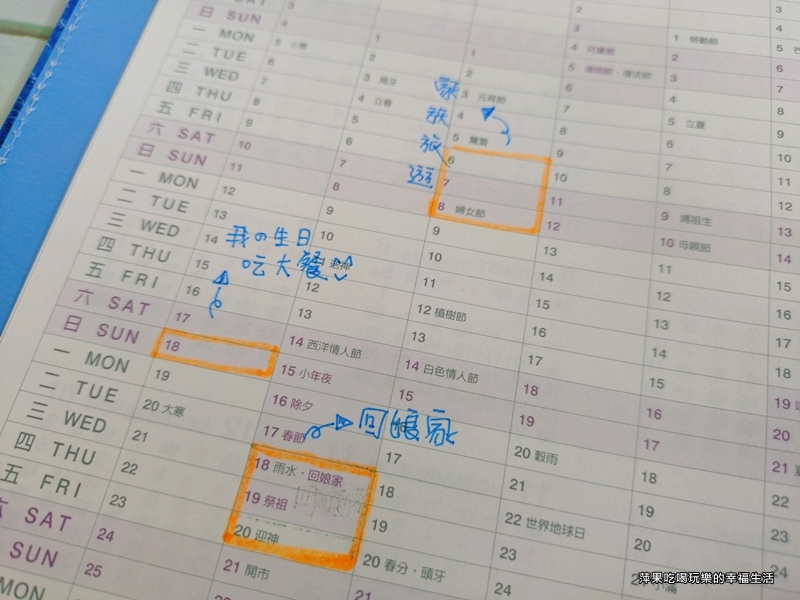 日 SUN
一 MON
二 TUE
三 WED
四 THU
五 FRI
六 SAT
日 SUN
一 MON
二 TUE
三 WED
四 THU
五 FRI
六 SAT
日 SUN
一 MON
二 TUE
三 WED
四 THU
五 FRI
SAT
SUN
MON
3
4
5 小寒
6
7
8
9
10
11
12
13
14
15
16
17
18
19
20 大寒
21
22
23
24
25
我の生日
吃大餐
1
2
3 尾牙
4 立春
5
6
7
8
9
10
12
13
14 西洋情人節
15 小年夜
16 除夕
17 春節
18 雨水・回娘家
19 祭祖
20 迎神
21 開市
回娘家
家族旅遊
1
2
3 元宵節
4
5 驚蟄
6
7
8 婦女節
9
10
11
12 植樹節
13
14 白色情人節
15
17
18
19
20 春分・頭牙
21
2
3
4 兒童節
5 清明節・復活節
6
7
8
9
10
11
12
13
14
15
16
17
18
19
20 穀雨
21
22 世界地球日
23
24
1 勞動節
2
3
4
5 立夏
6
7
8
9 媽祖生
10 母親節
11
12
13
14
15
16
17
18
19
20
3
4
5
6
7
8
9
10
11
12
13
14
15
16
17
18
19
20
21
22
23
24
25
萍果吃喝玩樂的幸福生活